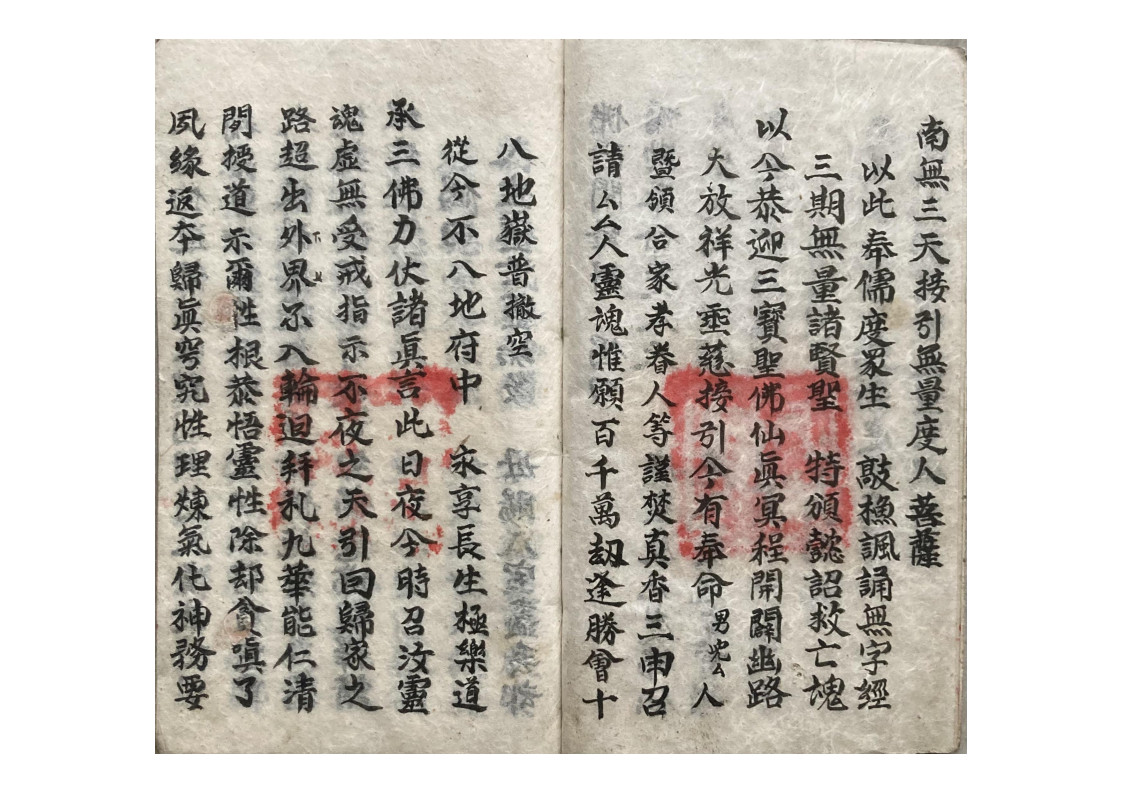 南無三天接引無量度人菩薩
以此奉儒度眾生 敲䲣諷誦無字經
三期無量諸賢聖 特頒懿詔救亡魂
以今恭迎三寶聖佛仙眞冥程開闢幽路
大放祥光垂慈接引今有奉命男兇厶人
暨領合家孝眷人等謹焚真香三申召
請厶厶人靈魂惟願百千萬刼逢勝會十
八地嶽普撤空
從今不入地府中 永享長生極樂道
承三佛力仗諸眞言此日夜今時召汝靈
魂虛無受戒指示不夜之天引囘歸家之
路超出外界不入輪迴拜礼九華能仁清
閒授道示爾性根恭悟靈性除却貪嗔了
夙緣返夲歸眞穹究性理煉氣化神務要